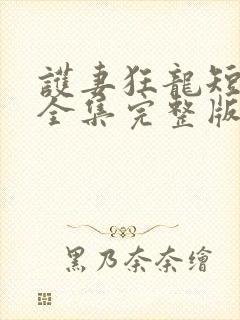 護妻狂龍短
全集完整版
黑乃奈奈繪